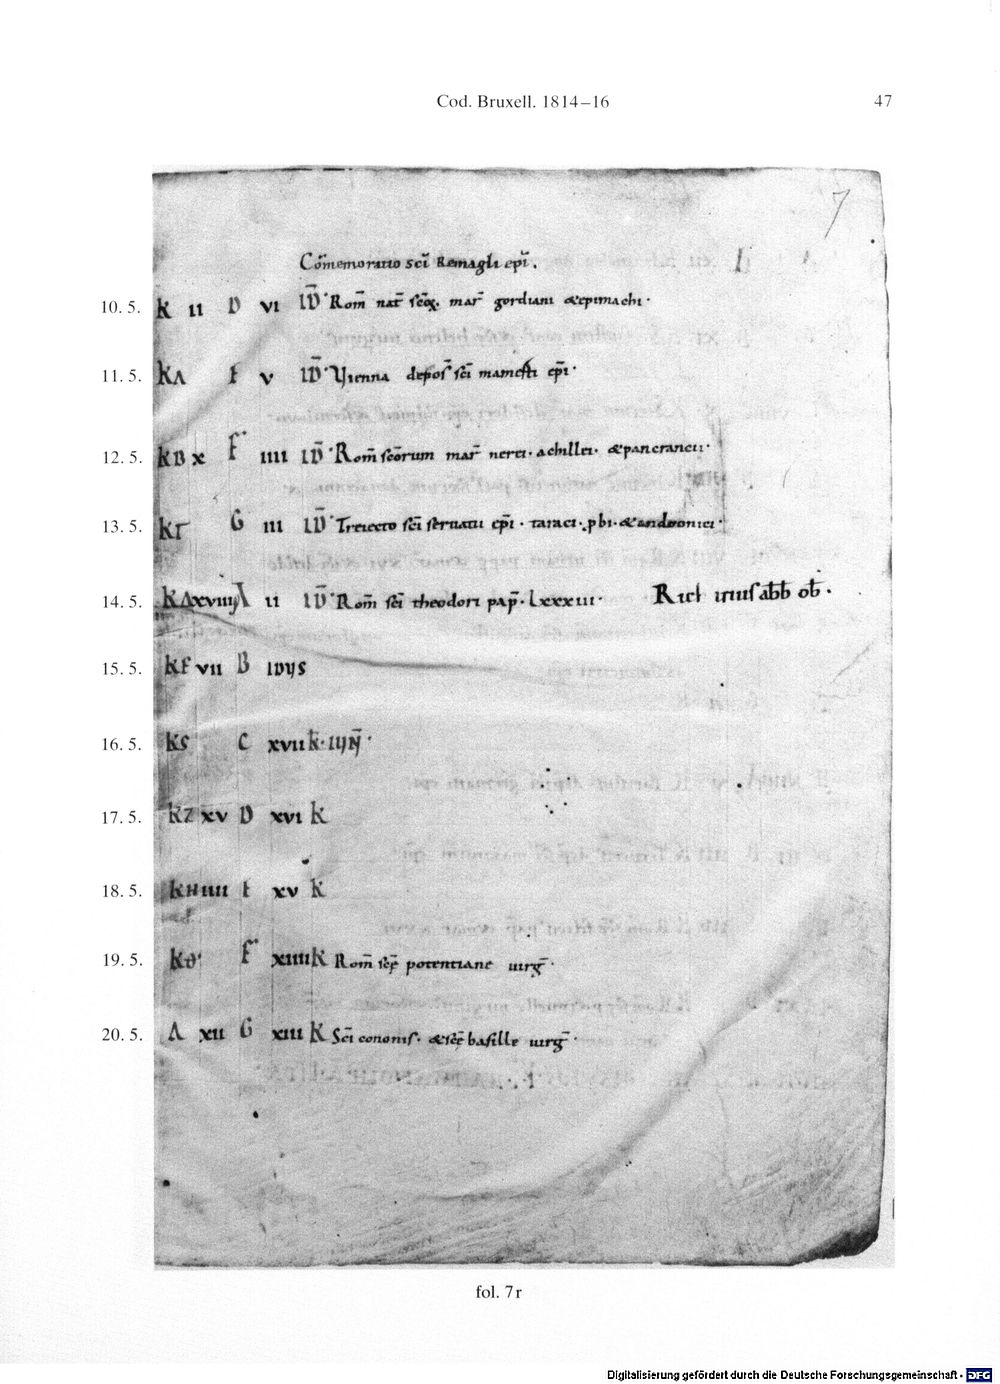 Cod. Bruxell. 1814–16 47
7
Cōmemoratio scī Remagli epī.
10. 5. K II D VI ID̄ Rom̄ nat̄ scōꝝ. mar̄ gordiani &epimachi.
11. 5. KΛ E V ID̄ Vienna depoſ̄ ſcī mamerti ep̄i.
12. 5. KB X F IIII ID̄ Rom̄ ſcōrum mar̄ nerei. achillei. &pancracii.
13. 5. KΓ G III ID̄ Treiecto ſcī ſeruatii ep̄i. taraci. p̄bi. &andronici.
14. 5. KΔ XVIIII A II ID̄ Rom̄ ſcī theodori pap̄. lxxxiii. abb ob.
15. 5. KE VII B IDUS
16. 5. KS C XVII K. IUN̄.
17. 5. KZ XV D XVI K
18. 5. KH IIII E XV K
19. 5. Kθ F XIIII K Rom̄ ſcę̄ potentiane uirḡ.
20. 5. Λ XII G XIII K Scī cononiſ. &ſcę̄ baſille uirḡ.
fol. 7r
Digitalisierung gefördert durch die Deutsche Forschungsgemeinschaft - DFG